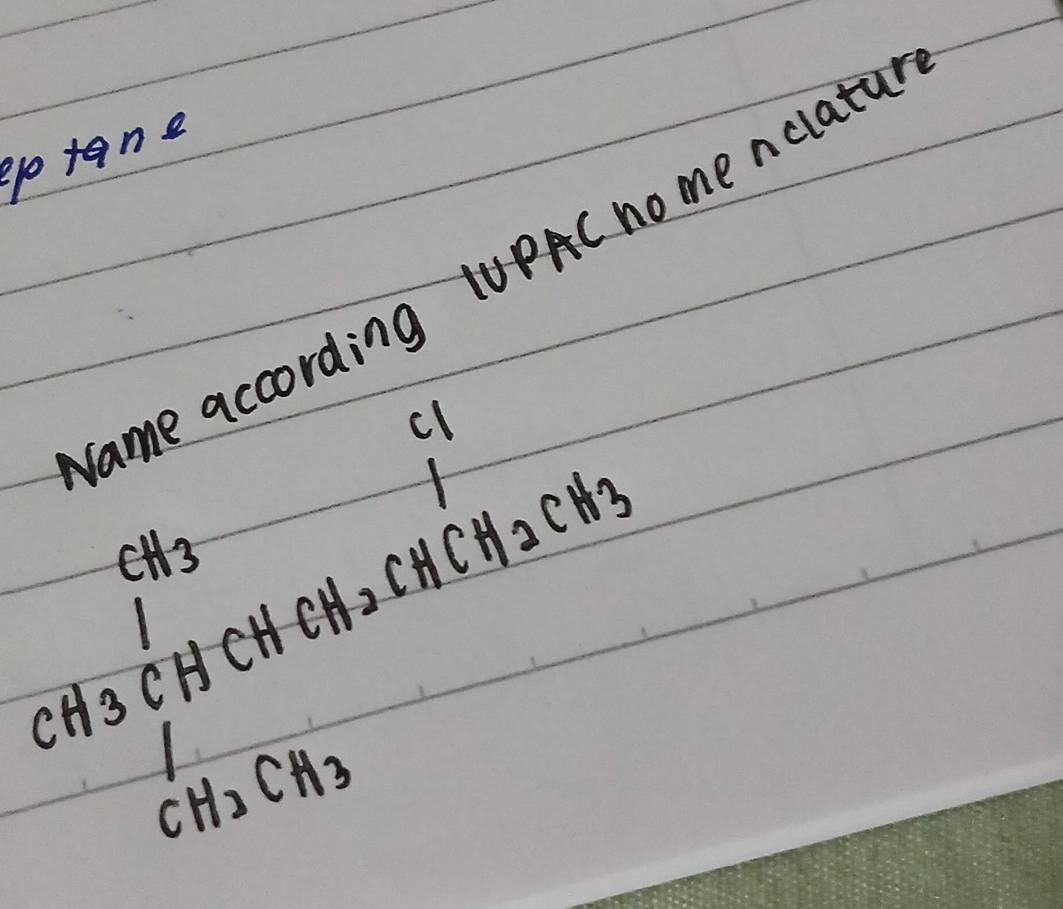 eptane
Name according IUPAC nomenclature
Cl
|
CH3
|
CH3CHCHCH2CHCH2CH3
|
CH2CH3